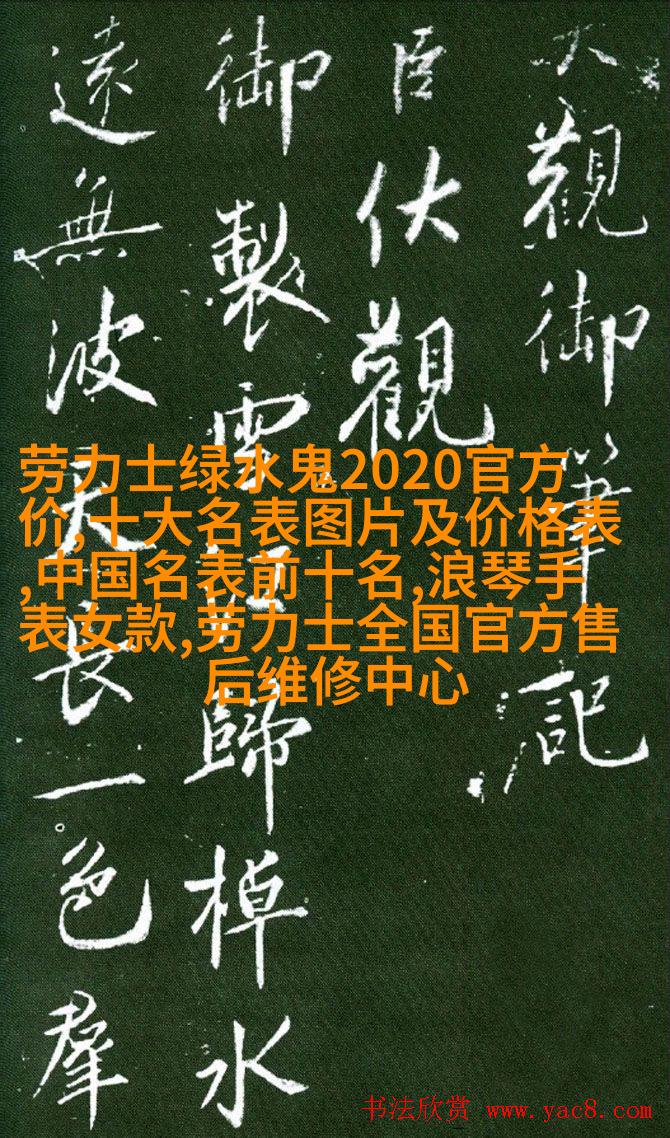 大觀御筆記
臣伏觀
御製雪江歸棹水
遠無波天長一色羣
劳力士绿水鬼2020官方
价,十大名表图片及价格表
,中国名表前十名,浪琴手
表女款,劳力士全国官方售
后维修中心
书法欣赏 www.yac8.com